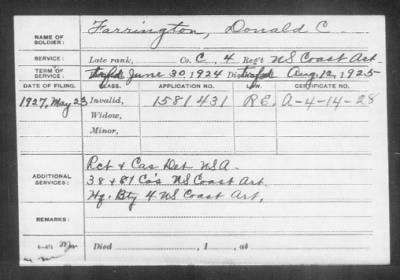 NAME OF SOLDIER: Farrington, Donald C.
SERVICE: Late rank, Co. C, 4 Reg't US Coast Art.
TERM OF SERVICE: June 30, 1924 Aug. 12, 1925
DATE OF FILING. CLASS. APPLICATION NO. CERTIFICATE NO.
1927, May 23 Invalid, 1581431 R.E. A-4-14-28
Widow,
Minor,
ADDITIONAL SERVICES: Rct & Cas Det USA.
38 & 81 Co's US Coast Art.
Hq. Bty 4 US Coast Art.
REMARKS:
Died , 1 , at